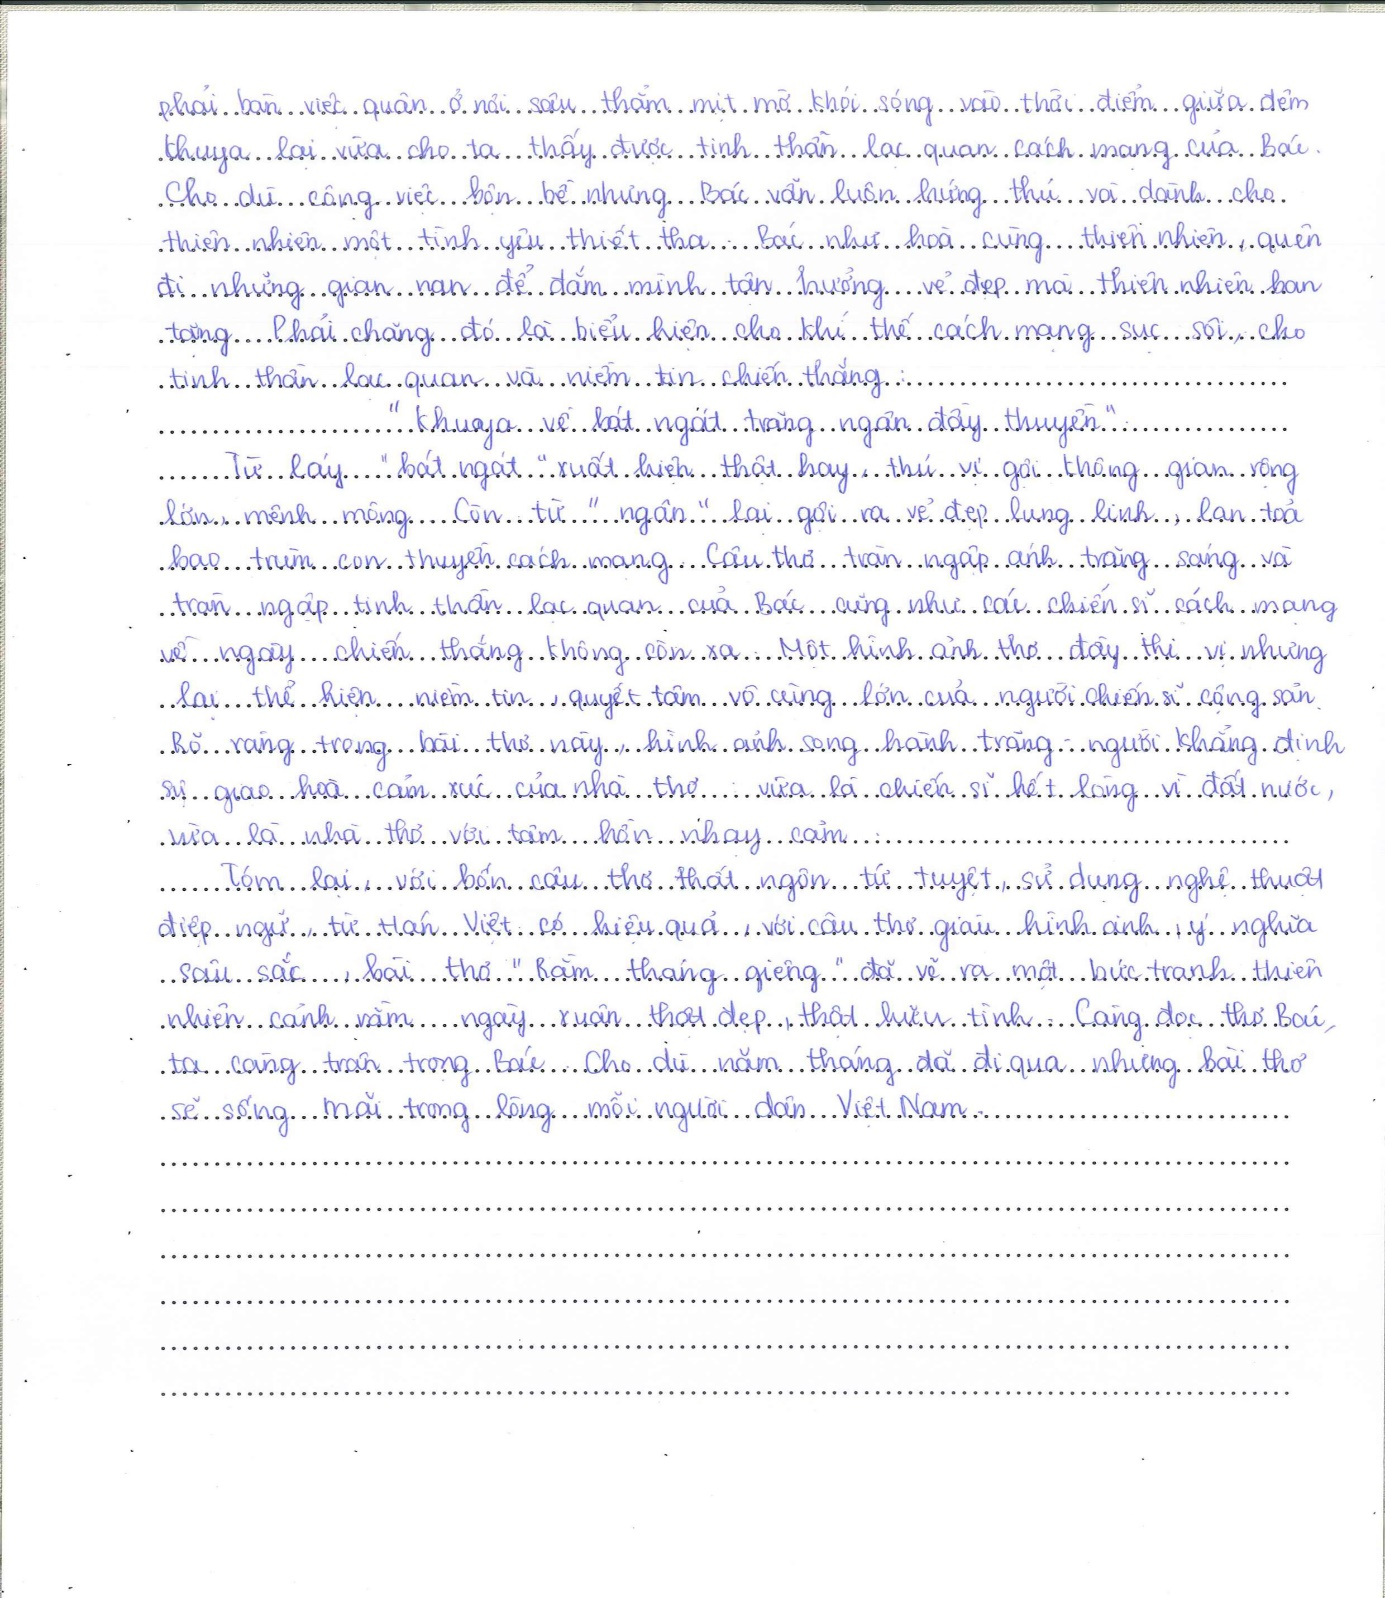 phải bàn việc quân ở nơi sâu thẳm mịt mờ khói sóng vào thời điểm giữa đêm
khuya lại vừa cho ta thấy được tinh thần lạc quan cách mạng của Bác.
Cho dù công việc bộn bề nhưng Bác vẫn luôn hứng thú và dành cho
thiên nhiên một tình yêu thiết tha. Bác như hoà cùng thiên nhiên, quên
đi những gian nan để đắm mình tận hưởng vẻ đẹp mà thiên nhiên ban
tặng. Phải chăng đó là biểu hiện cho khí thế cách mạng sục sôi, cho
tinh thần lạc quan và niềm tin chiến thắng:
"Khuya về bát ngát trăng ngân đầy thuyền"
Từ láy "bát ngát" xuất hiện thật hay, thú vị gợi không gian rộng
lớn, mênh mông. Còn từ "ngân" lại gợi ra vẻ đẹp lung linh, lan toả
bao trùm con thuyền cách mạng. Câu thơ tràn ngập ánh trăng sáng và
tràn ngập tinh thần lạc quan của Bác cũng như các chiến sĩ cách mạng
về ngày chiến thắng không còn xa. Một hình ảnh thơ đầy thi vị nhưng
lại thể hiện niềm tin, quyết tâm vô cùng lớn của người chiến sĩ cộng sản.
Rõ ràng trong bài thơ này, hình ảnh song hành trăng - người khẳng định
sự giao hoà cảm xúc của nhà thơ: vừa là chiến sĩ hết lòng vì đất nước,
vừa là nhà thơ với tâm hồn nhạy cảm.
Tóm lại, với bốn câu thơ thất ngôn tứ tuyệt, sử dụng nghệ thuật
điệp ngữ, từ Hán Việt có hiệu quả, với câu thơ giàu hình ảnh, ý nghĩa
sâu sắc, bài thơ "Rằm tháng giêng" đã vẽ ra một bức tranh thiên
nhiên cảnh rằm ngày xuân thật đẹp, thật hữu tình. Càng đọc thơ Bác,
ta càng trân trọng Bác. Cho dù năm tháng đã đi qua nhưng bài thơ
sẽ sống mãi trong lòng mỗi người dân Việt Nam.